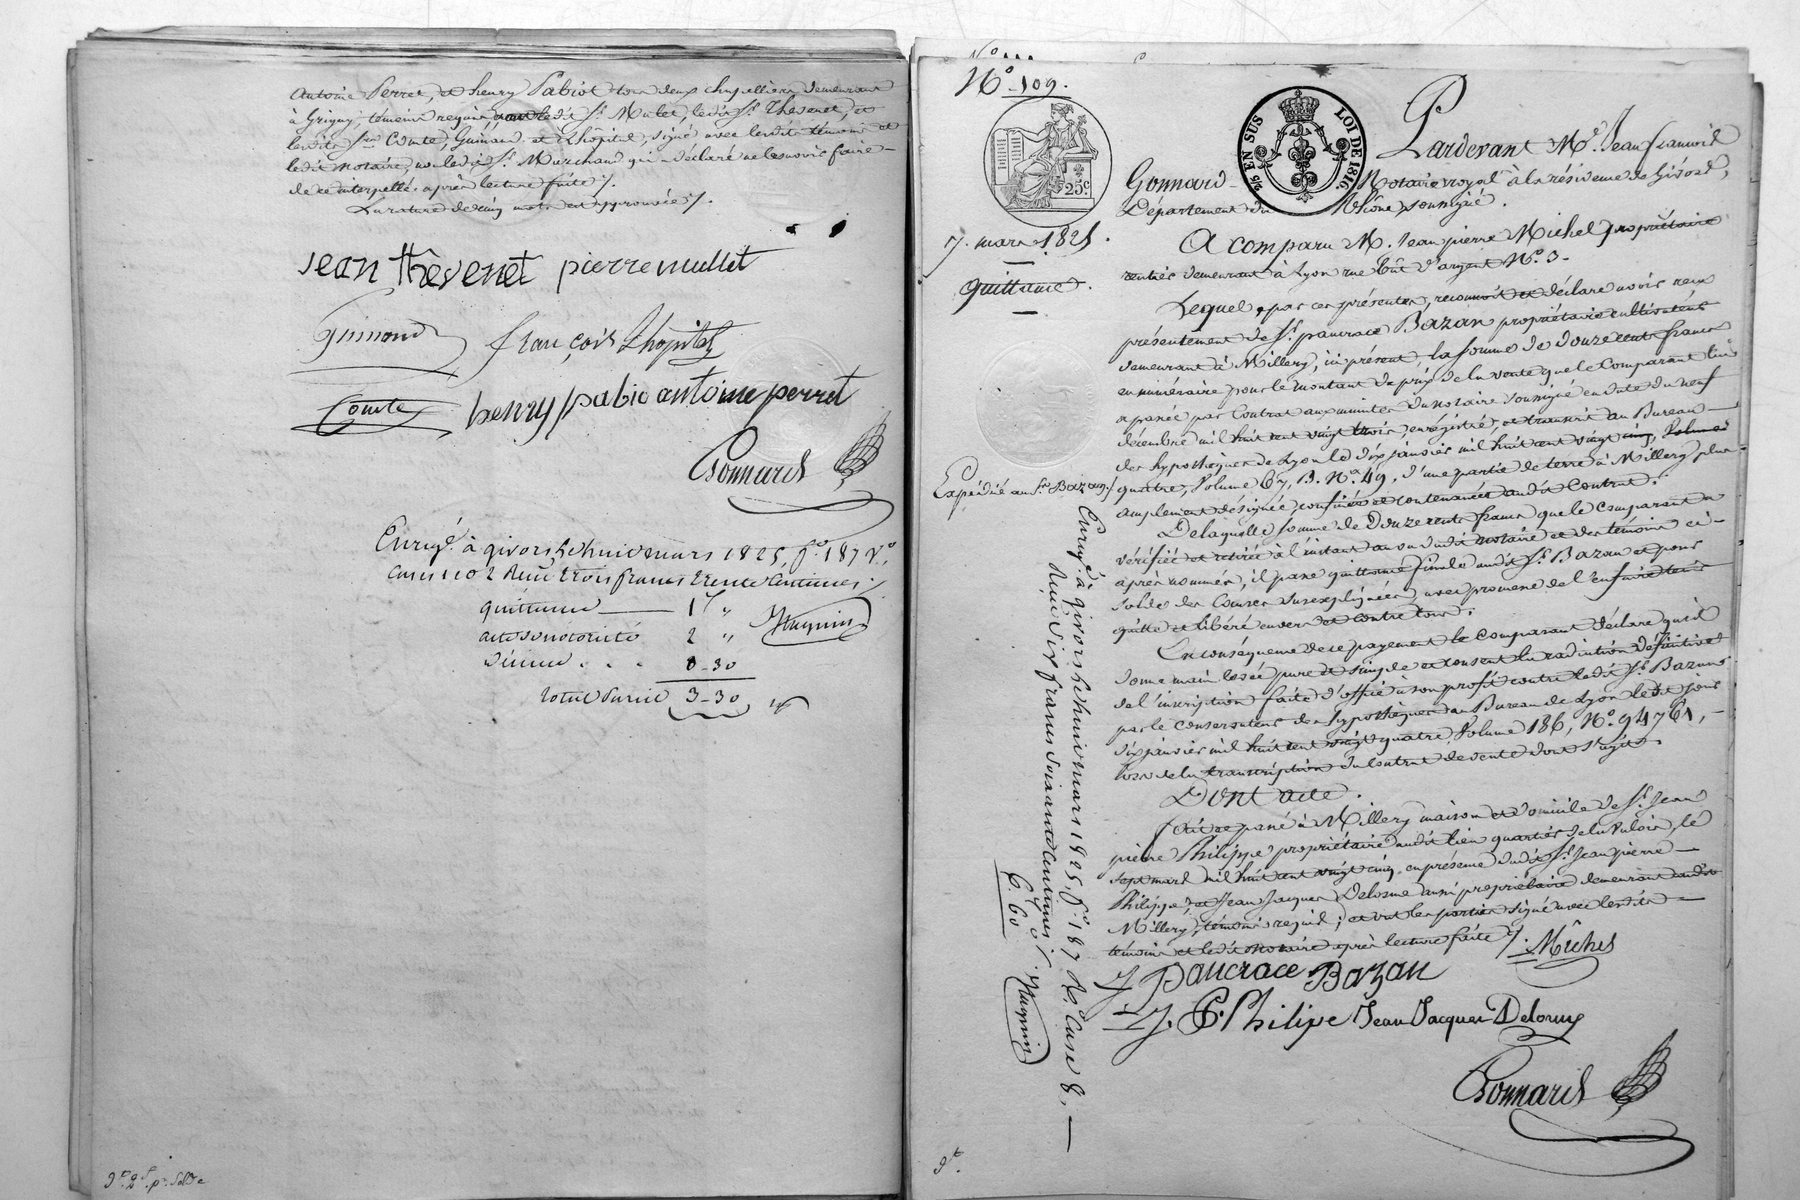 Antoine Perret, et henry Pabiot tous deux chapelliers demeurant
à Grigny, témoins requis, ledit Sr. Mulet, ledit Sr. Thevenet, et
lesdits Srs Comte, Guimand et Lhôpital, signé avec lesdits témoins et
ledit notaire, non ledit Sr. Marchand qui a déclaré ne le savoir faire
de ce interpellé, après lecture faite ./.
La rature de cinq mots est approuvée ./.
jean thêvenet pierre mullet
Guimond françois Lhopital
Comte henry pabio antoine perret
Gonnard
Enregé. à givors le huit mars 1825, fo. 187 Vo.,
Cases 1 et 2 Reçu trois francs trente Centimes ;
quittance 1 "
acte de notoriété 2 "
Décime . . . 0-30
total Parié 3-30
9e 2d. pr. solde
No. 109.
25c.
2/5 EN SUS LOI DE 1816
Pardevant Me. Jean françois
Gonnard Notaire royal à la résidence de Givors,
Département du Rhône, soussigné.
7. mars 1825.
quittance.
A comparu M. Jean pierre Michel propriétaire
rentier demeurant à Lyon rue Bât d'argent No. 3.
Lequel, par ces présentes, reconnoit et déclare avoir reçu
présentement de Sr. pancrace Bazan propriétaire cultivateur
demeurant à Millery, ici présent, la somme de douze cent francs
en numéraire pour le montant du prix de la vente que le Comparant lui
a passée par Contrat aux minutes du notaire soussigné en date du neuf
décembre mil huit cent vingt trois, enrégistré, et transcrit au Bureau
des hypothèques de Lyon le dix janvier mil huit cent vingt
quatre, Volume 67, B. No. 49, d'une partie de terre à Millery plus
amplement désignée, confinée et contenancée audit Contrat.
Expédié au Sr. Bazan ./.
De laquelle somme de Douze cents francs que le Comparant a
vérifiée et retirée à l'instant au vu dudit notaire et des témoins ci-
après nommés, il passe quittance finale audit Sr. Bazan et pour
solde des Causes susexpliquées, avec promesse de l'en faire tenir
quitte et libéré envers et contre tous.
En conséquence de ce payement le comparant déclare qu'il
donne main levée pure et simple et consent la radiation définitive
de l'inscription faite d'office à son profit contre ledit Sr. Bazan
par le conservateur des hypothèques au Bureau de Lyon ledit jour
dix janvier mil huit cent vingt quatre, Volume 186, No. 94761,
lors de la transcription du Contrat de vente dont s'agit.
Dont acte.
fait et passé à Millery maison et domicile de Sr. Jean
pierre Philippe propriétaire audit lieu quartier de la , le
sept mars mil huit cent vingt cinq, en présence dudit Sr. Jean pierre
Philippe, et Jean Jacques Delorme aussi propriétaire demeurant audit
Millery, témoins requis ; et ont les parties signé avec lesdits
témoins et ledit notaire après lecture faite ./. Michel
Pancrace Bazan
J. P. Philipe Jean Jacques Delorme
Gonnard
Enregé. à givors le huit mars 1825, fo. 187 Vo. Case 8,
Reçu six francs soixante Centimes ./.
6. 60
9e.